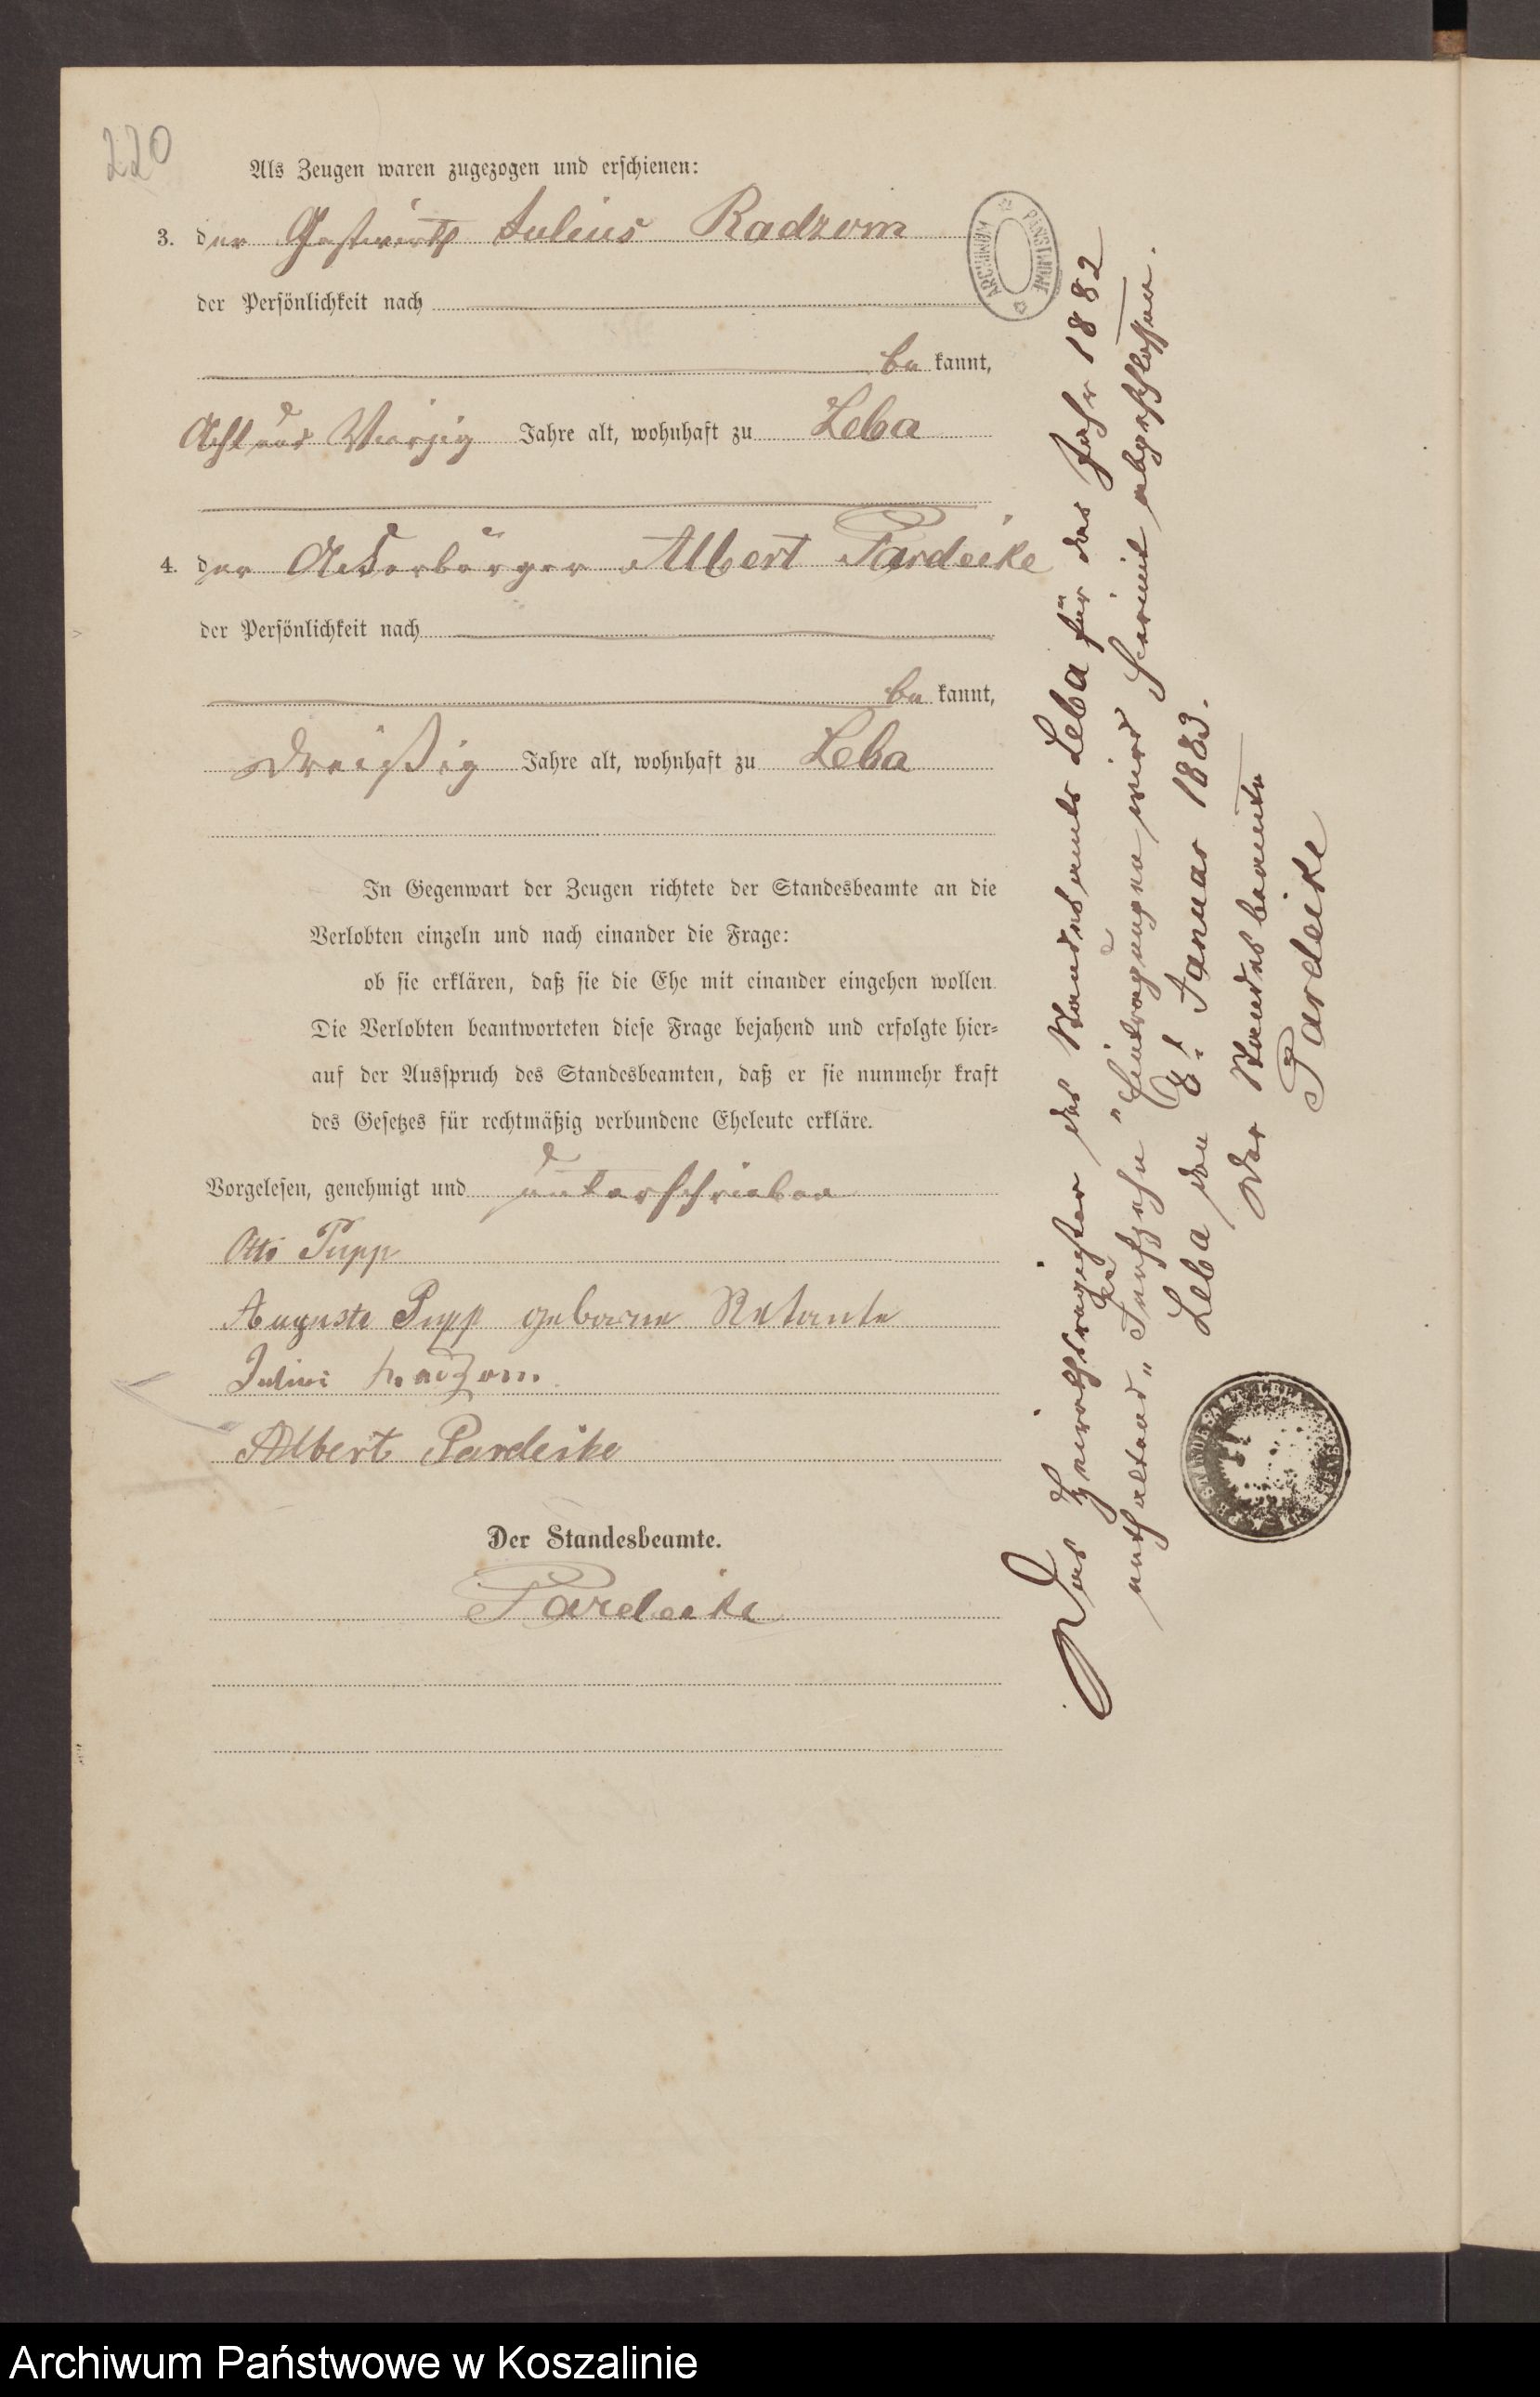 220
Als Zeugen waren zugezogen und erschienen:
3. der Gastwirth Julius Radzom
der Persönlichkeit nach
be kannt,
Acht und Vierzig Jahre alt, wohnhaft zu Leba
4. der Ackerbürger Albert Pardeike
der Persönlichkeit nach
be kannt,
Dreißig Jahre alt, wohnhaft zu Leba
In Gegenwart der Zeugen richtete der Standesbeamte an die
Verlobten einzeln und nach einander die Frage:
ob sie erklären, daß sie die Ehe mit einander eingehen wollen.
Die Verlobten beantworteten diese Frage bejahend und erfolgte hier=
auf der Ausspruch des Standesbeamten, daß er sie nunmehr kraft
des Gesetzes für rechtmäßig verbundene Eheleute erkläre.
Vorgelesen, genehmigt und unterschrieben
Otto Pupp
Auguste Pupp geborne
Julius Radzom.
Albert Pardeike
Der Standesbeamte.
Pardeike
Das Heirathsregister des Standesamts Leba für das Jahr 1882
enthaltend „Fünfzehn" Eintragungen wird hiermit abgeschlossen.
Leba den 8t Januar 1883.
Der Standesbeamte
Pardeike
ARCHIWUM PAŃSTWOWE
Archiwum Państwowe w Koszalinie